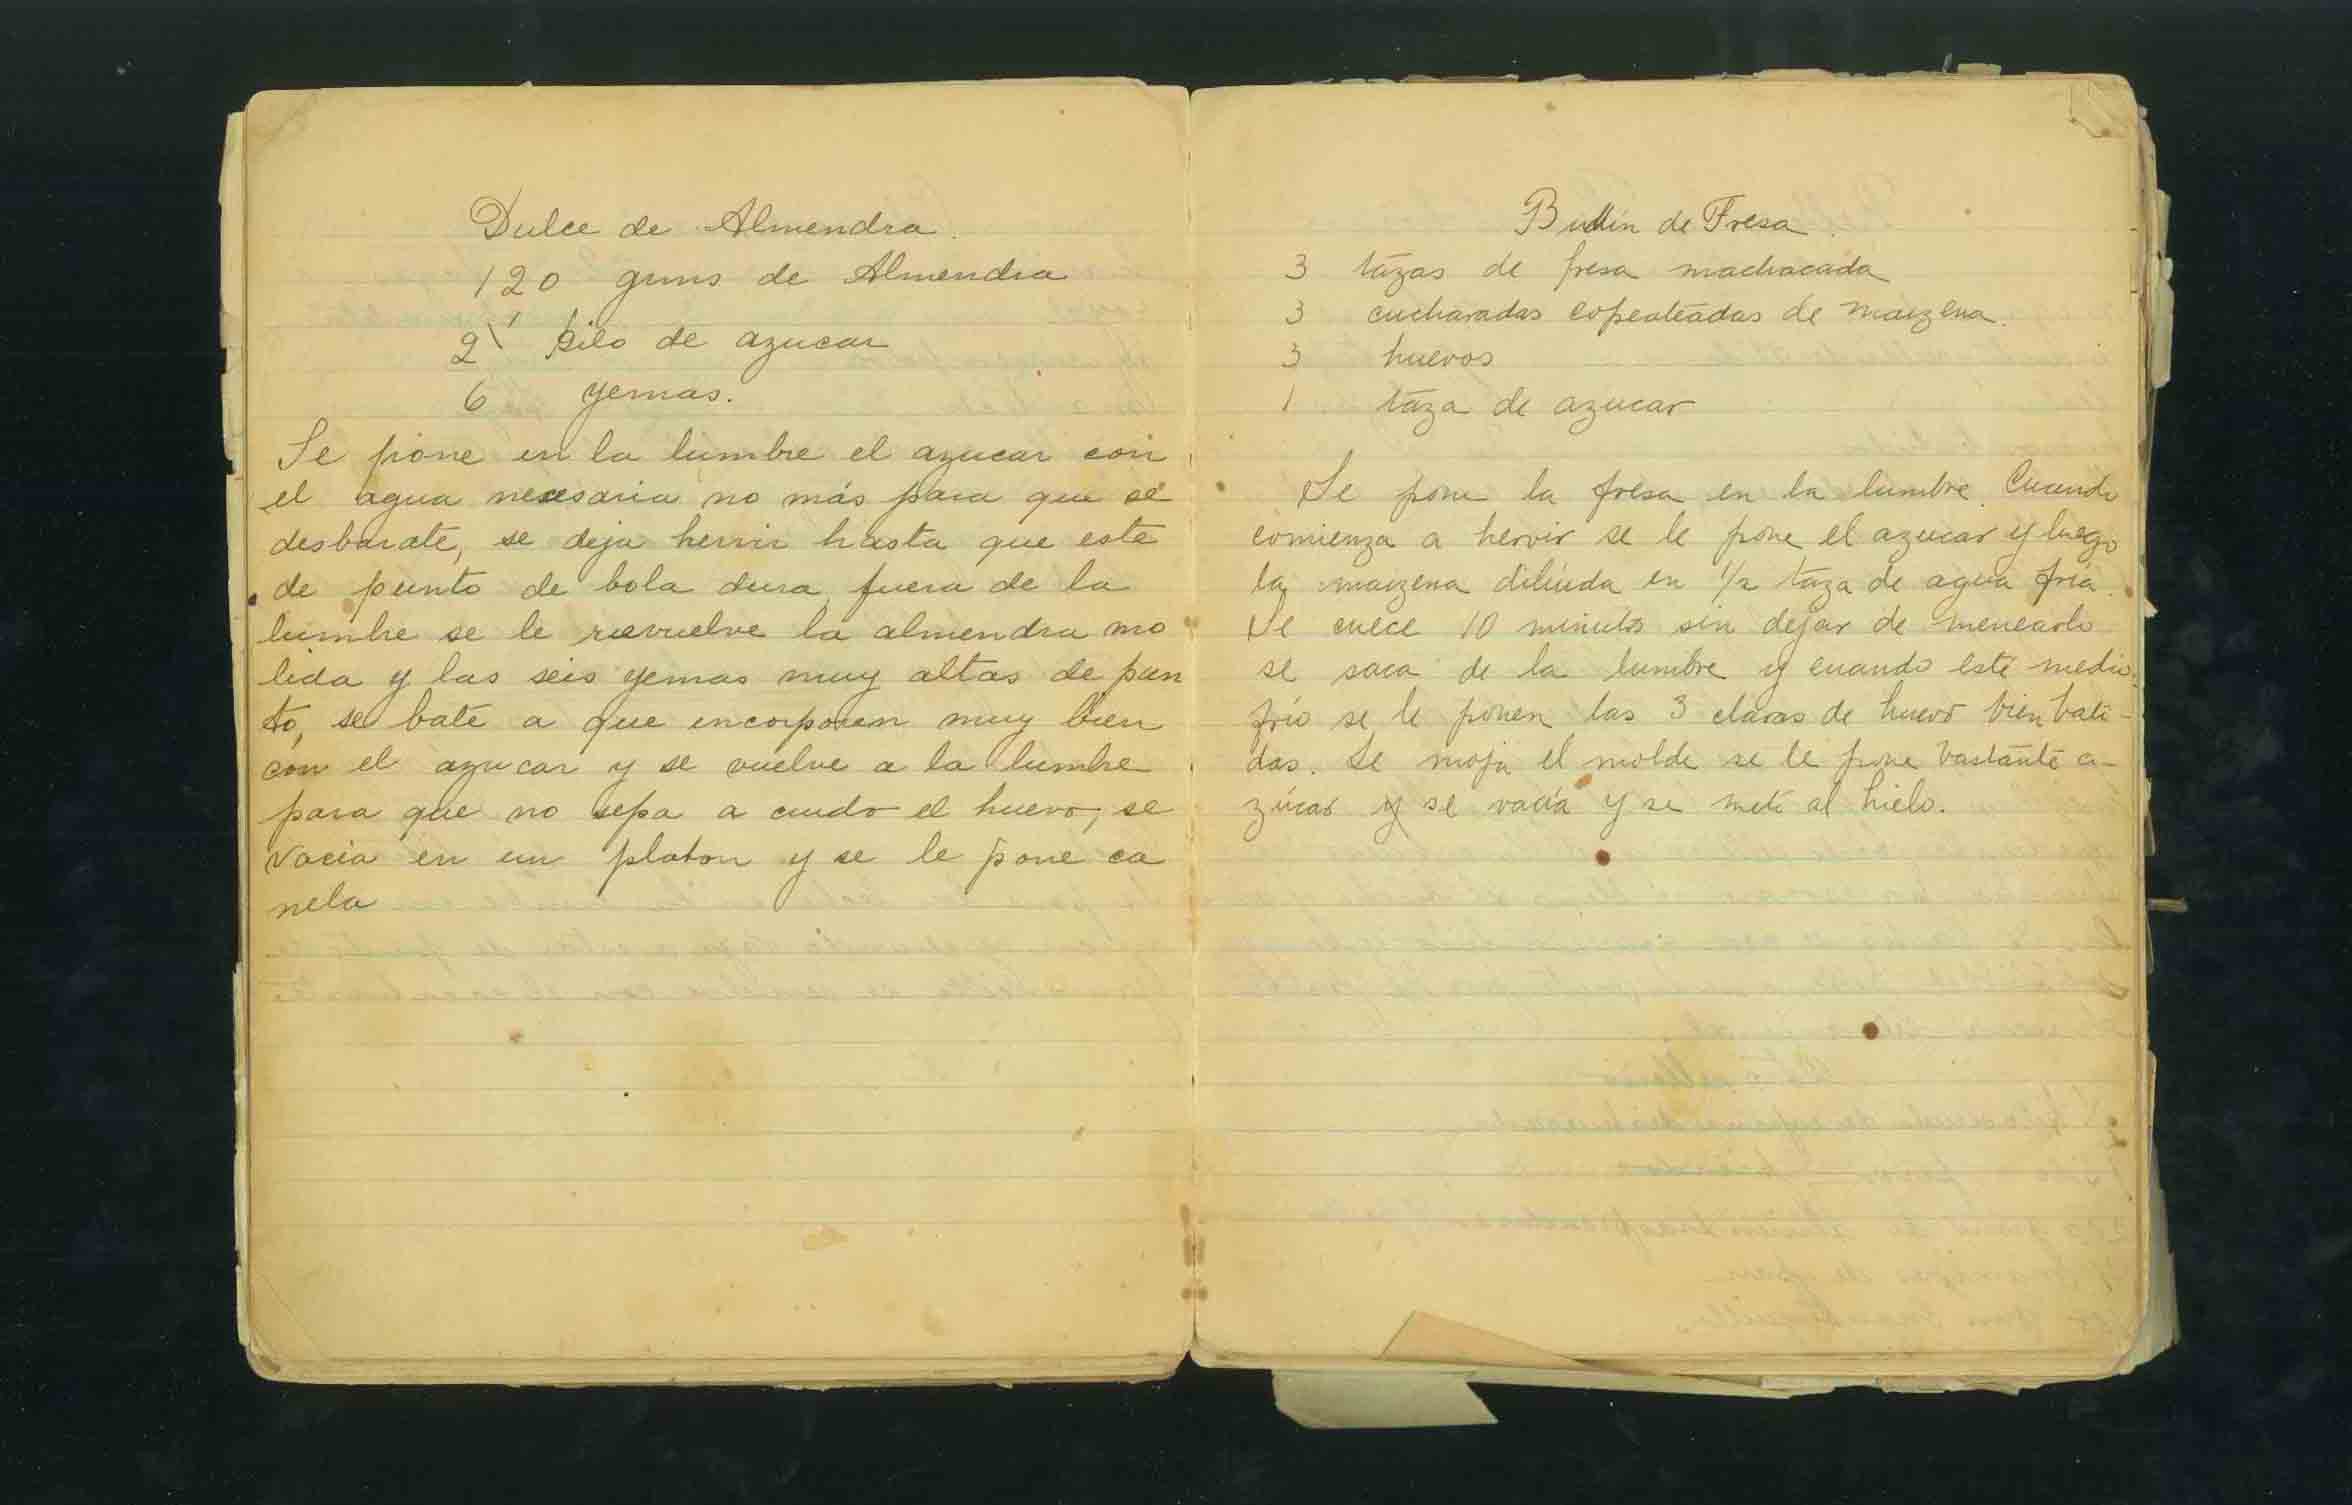 Dulce de Almendra.
120 grms de Almendra
1/2 kilo de azucar
6 yemas.
Se pone en la lumbre el azucar con
el agua necesaria no más para que se
desbarate, se deja hervir hasta que este
de punto de bola dura, fuera de la
lumbre se le revuelve la almendra mo
lida y las seis yemas muy altas de pun
to, se bate a que encorporen muy bien
con el azucar y se vuelve a la lumbre
para que no sepa a crudo el huevo, se
vacia en un platon y se le pone ca
nela
Budín de Fresa.
3 tazas de fresa machacada
3 cucharadas copeteadas de maizena.
3 huevos
1 taza de azucar
Se pone la fresa en la lumbre. Cuando
comienza a hervir se le pone el azucar y luego
la maizena diluida en 1/2 taza de agua fría.
Se cuece 10 minutos sin dejar de menearlo
se saca de la lumbre y cuando esté medio
frío se le ponen las 3 claras de huevo bien bati-
das. Se moja el molde se le pone bastante a-
zúcar y se vacía y se mete al hielo.